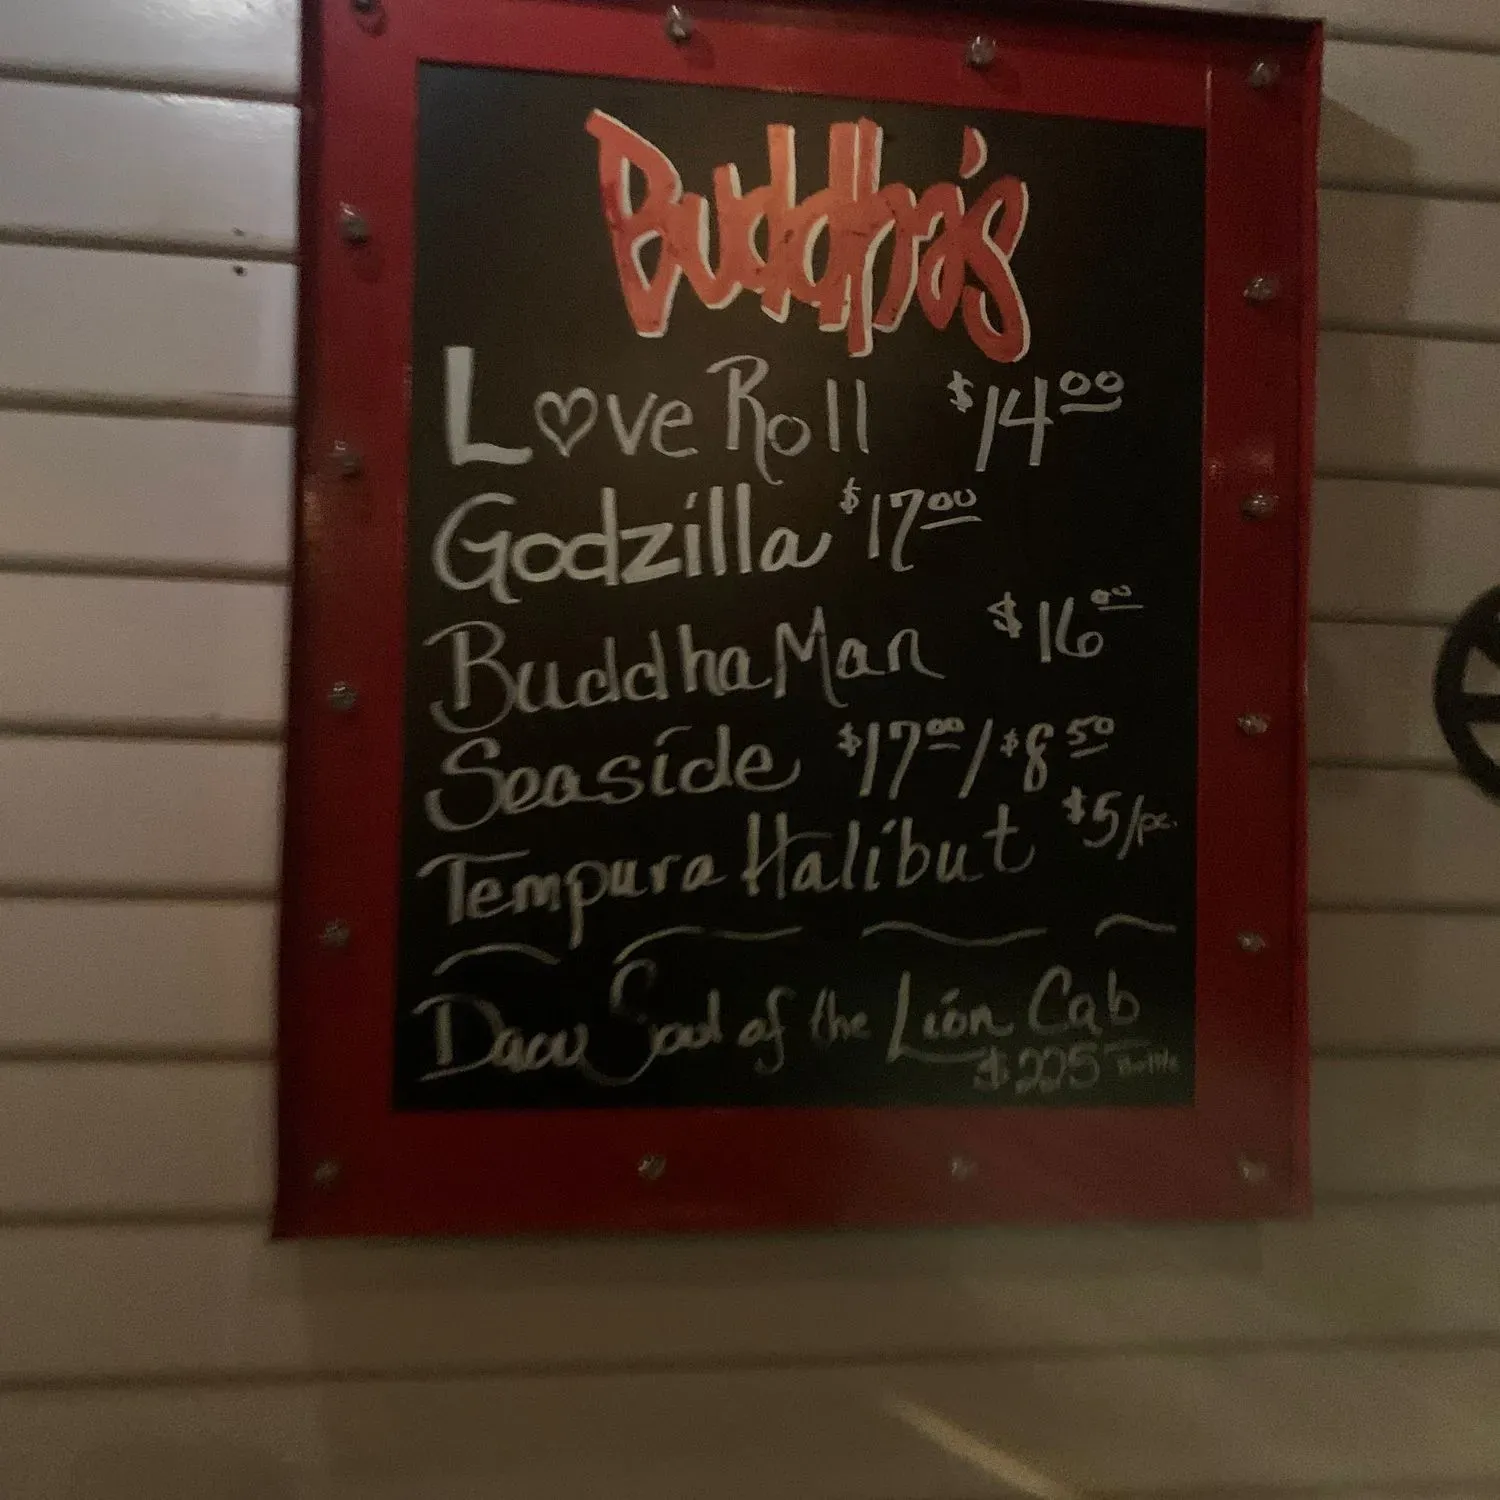 Buddha's
Love Roll $14.00
Godzilla $17.00
Buddha Man $16.00
Seaside $17.00/$8.50
Tempura Halibut $5/pc.
Daou Soul of the Lion Cab
$225 Bottle